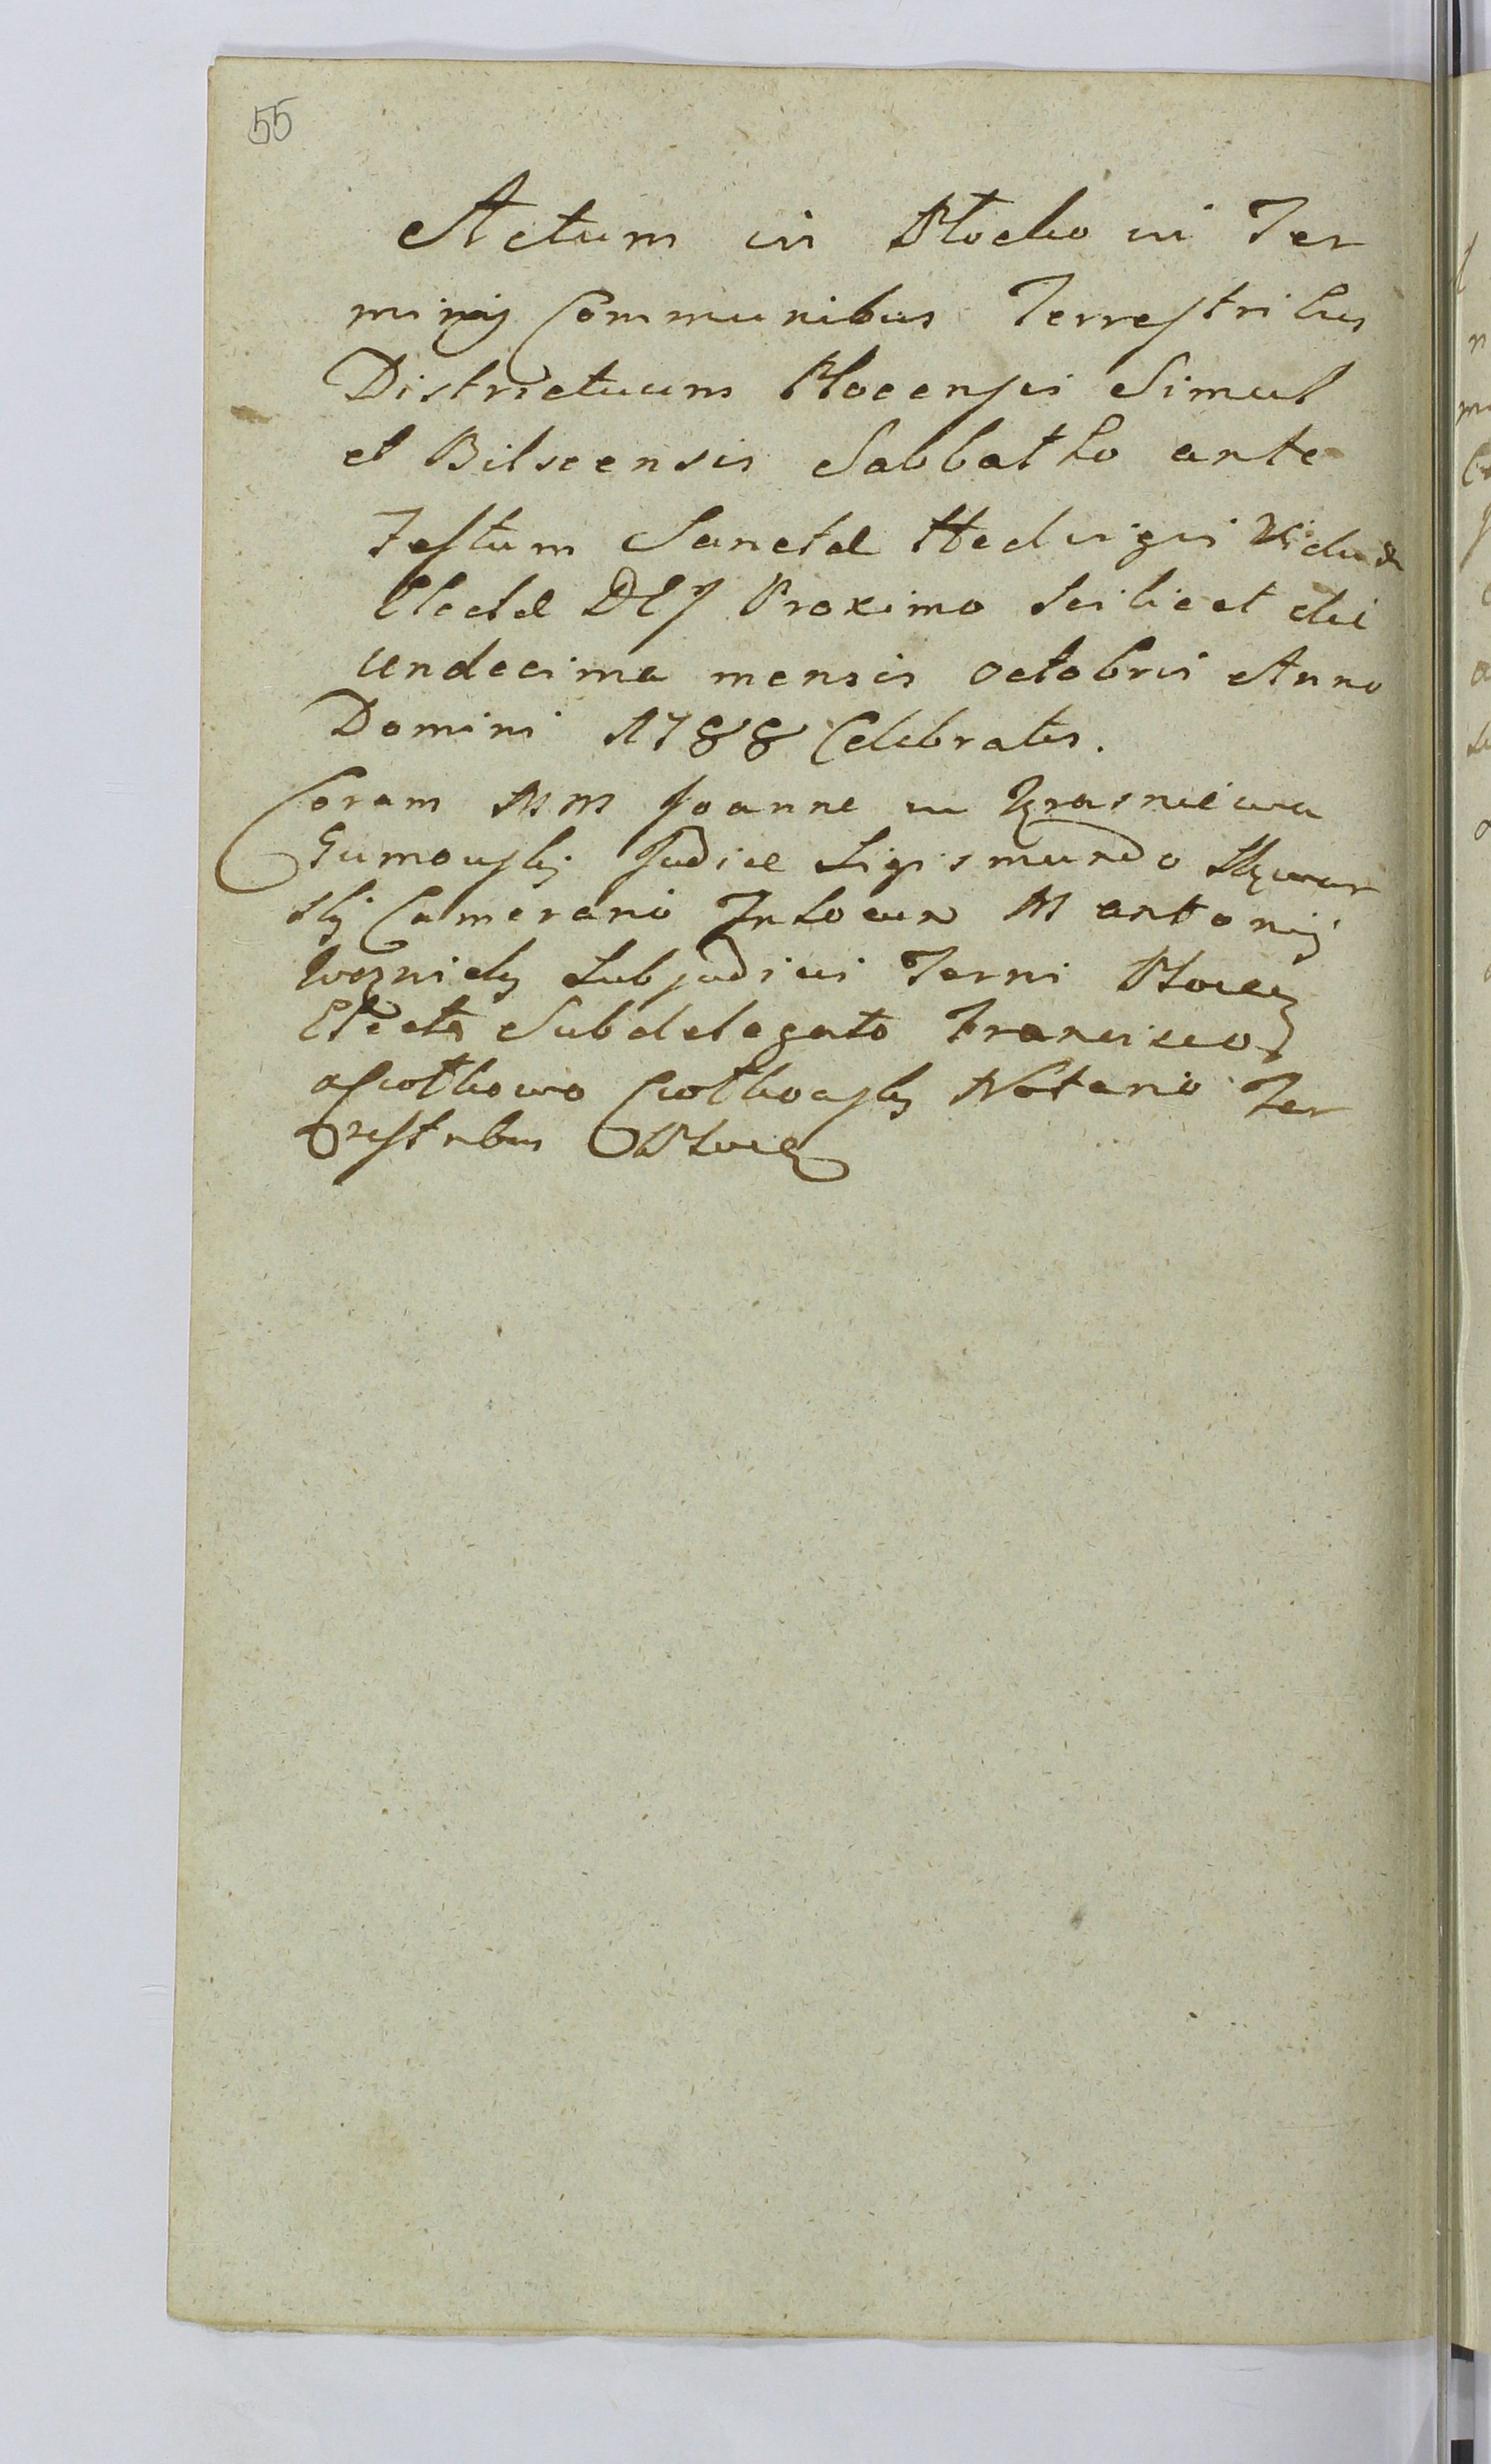 55
Actum in Plocko in Ter
minis Communibus Terrestribus
Districtuum Plocensis Simul
et Bilscensis Sabbatho ante
Festum Sanctæ Hedvigis Viduæ
Electæ Proximo Scilicet die
undecima mensis octobris Anno
Domini 1788 Celebratis.
Coram MM Joanne in Krasniewa
Gumowski Judice Sigismundo
Camerario In Locum M Antonij
Woznicki Subjudicis Terri Plocen
Electo Subdelegato Francisco
a Ciołkowo Ciołkowski Notario Ter
restribus Plocen